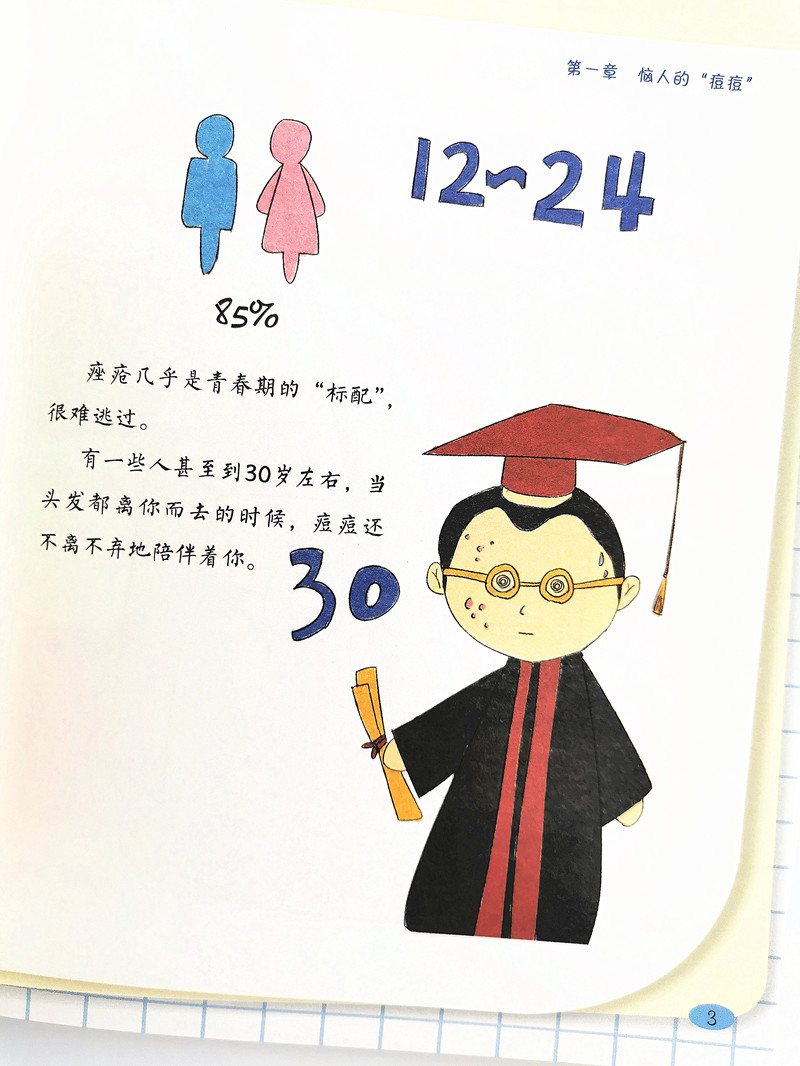 第一章 恼人的“痘痘”
12~24
85%
痤疮几乎是青春期的“标配”，
很难逃过。
有一些人甚至到30岁左右，当
头发都离你而去的时候，痘痘还
不离不弃地陪伴着你。
30
3